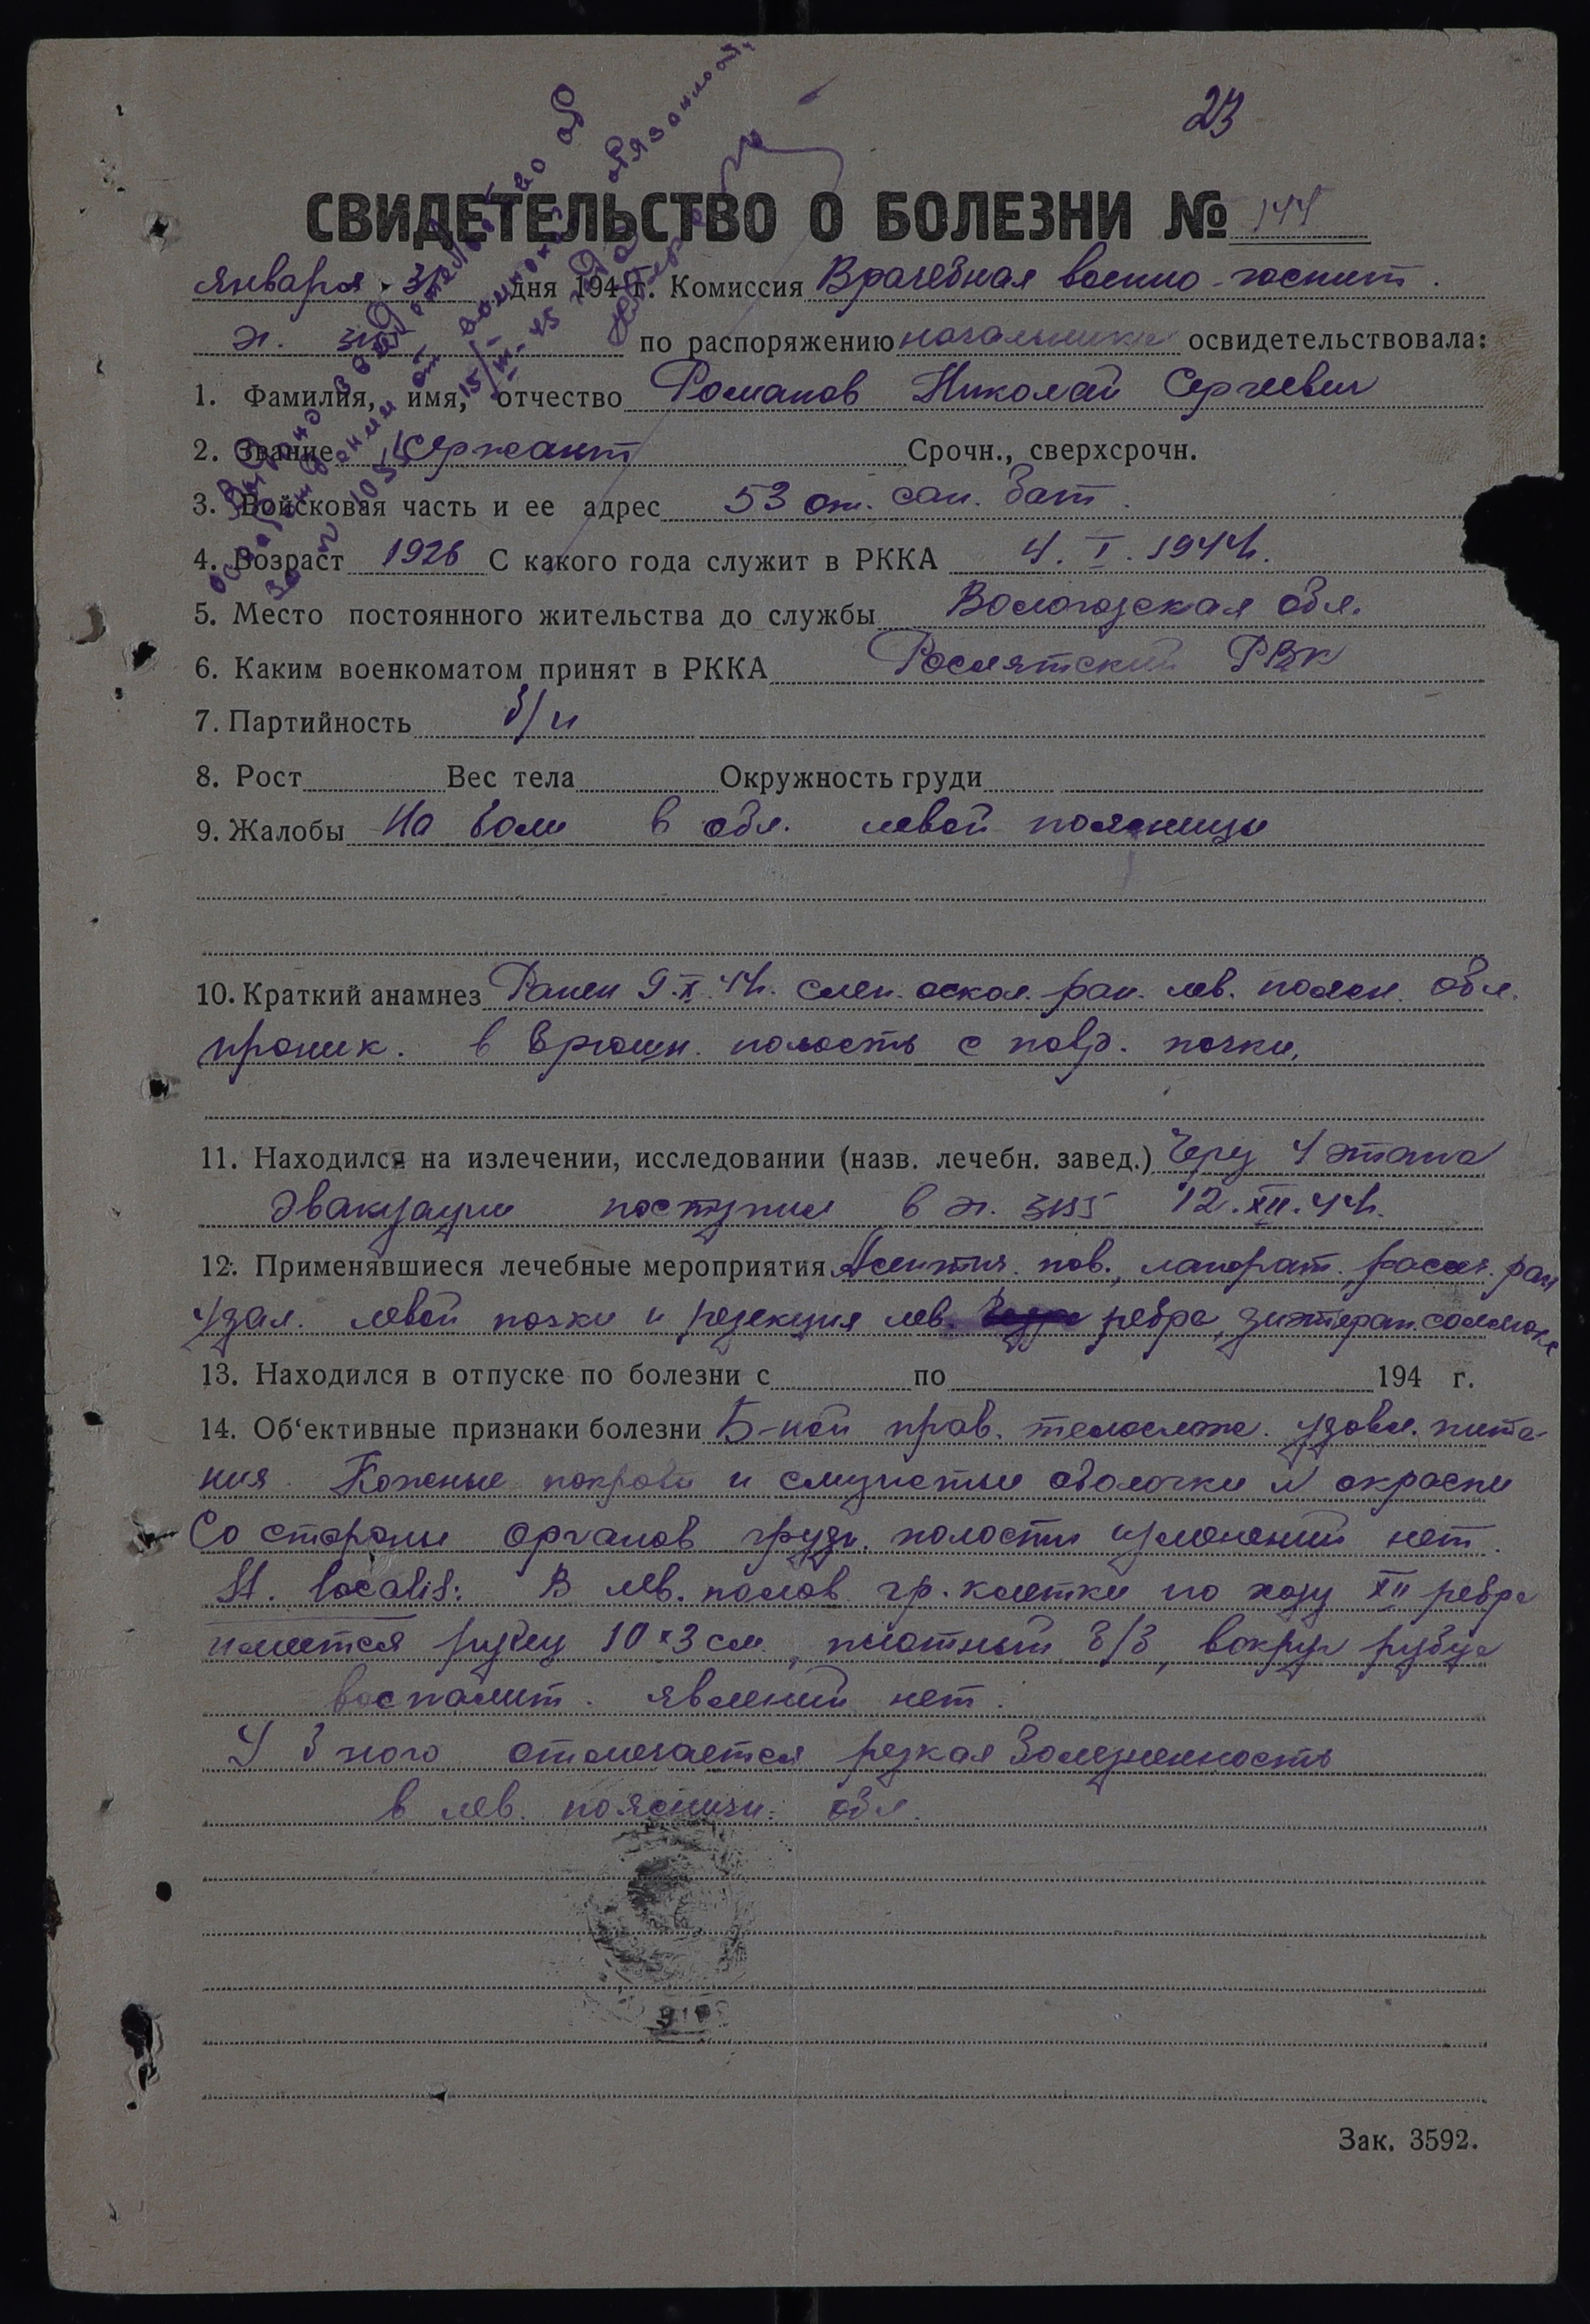 23
СВИДЕТЕЛЬСТВО О БОЛЕЗНИ № 144
Января 31 дня 194 г. Комиссия Врачебная военно-госпит.
по распоряжению начальника освидетельствовала:
1. Фамилия, имя, отчество Романов Николай Сергеевич
2. Звание Сержант Срочн., сверхсрочн.
3. Войсковая часть и ее адрес 53 от. сан. бат.
4. Возраст 1926 С какого года служит в РККА 4. I. 1944.
5. Место постоянного жительства до службы Вологодская обл.
6. Каким военкоматом принят в РККА Рослятский РВК
7. Партийность б/п
8. Рост Вес тела Окружность груди
9. Жалобы На боли в обл. левой поясницы
10. Краткий анамнез Ранен 9.X.44. слеп. оскол. ран. лев. поясн. обл.
проник. в брюшн. полость с повр. почки.
11. Находился на излечении, исследовании (назв. лечебн. завед.) Через 4 этапа
эвакуации поступил в 12.XII.44.
12. Применявшиеся лечебные мероприятия Асептич. пов., лапорат., рассеч. ран
удал. левой почки и резекция лев. ребра,
13. Находился в отпуске по болезни с по 194 г.
14. Об‘ективные признаки болезни Б-ной прав. телослож. удовл. пита-
ния. Кожные покровы и слизистые оболочки N окраски
Со стороны органов грудн. полости изменений нет.
St. localis: В лев. полов. гр. клетки по ходу XII ребра
имеется рубец 10 x 3 см, плотный б/б, вокруг рубца
воспалит. явлений нет.
У б-ного отмечается резкая болезненность
в лев. поясничн. обл.
Зак. 3592.